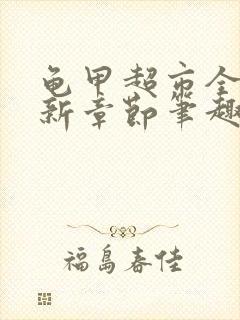 龟甲超市全
新章节笔趣
福岛春佳